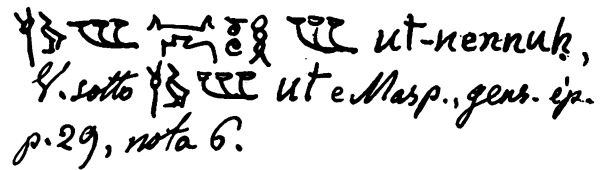 ut-nennuḥ,
V. sotto ut e Masp., gens. ép.
p. 29, nota 6.